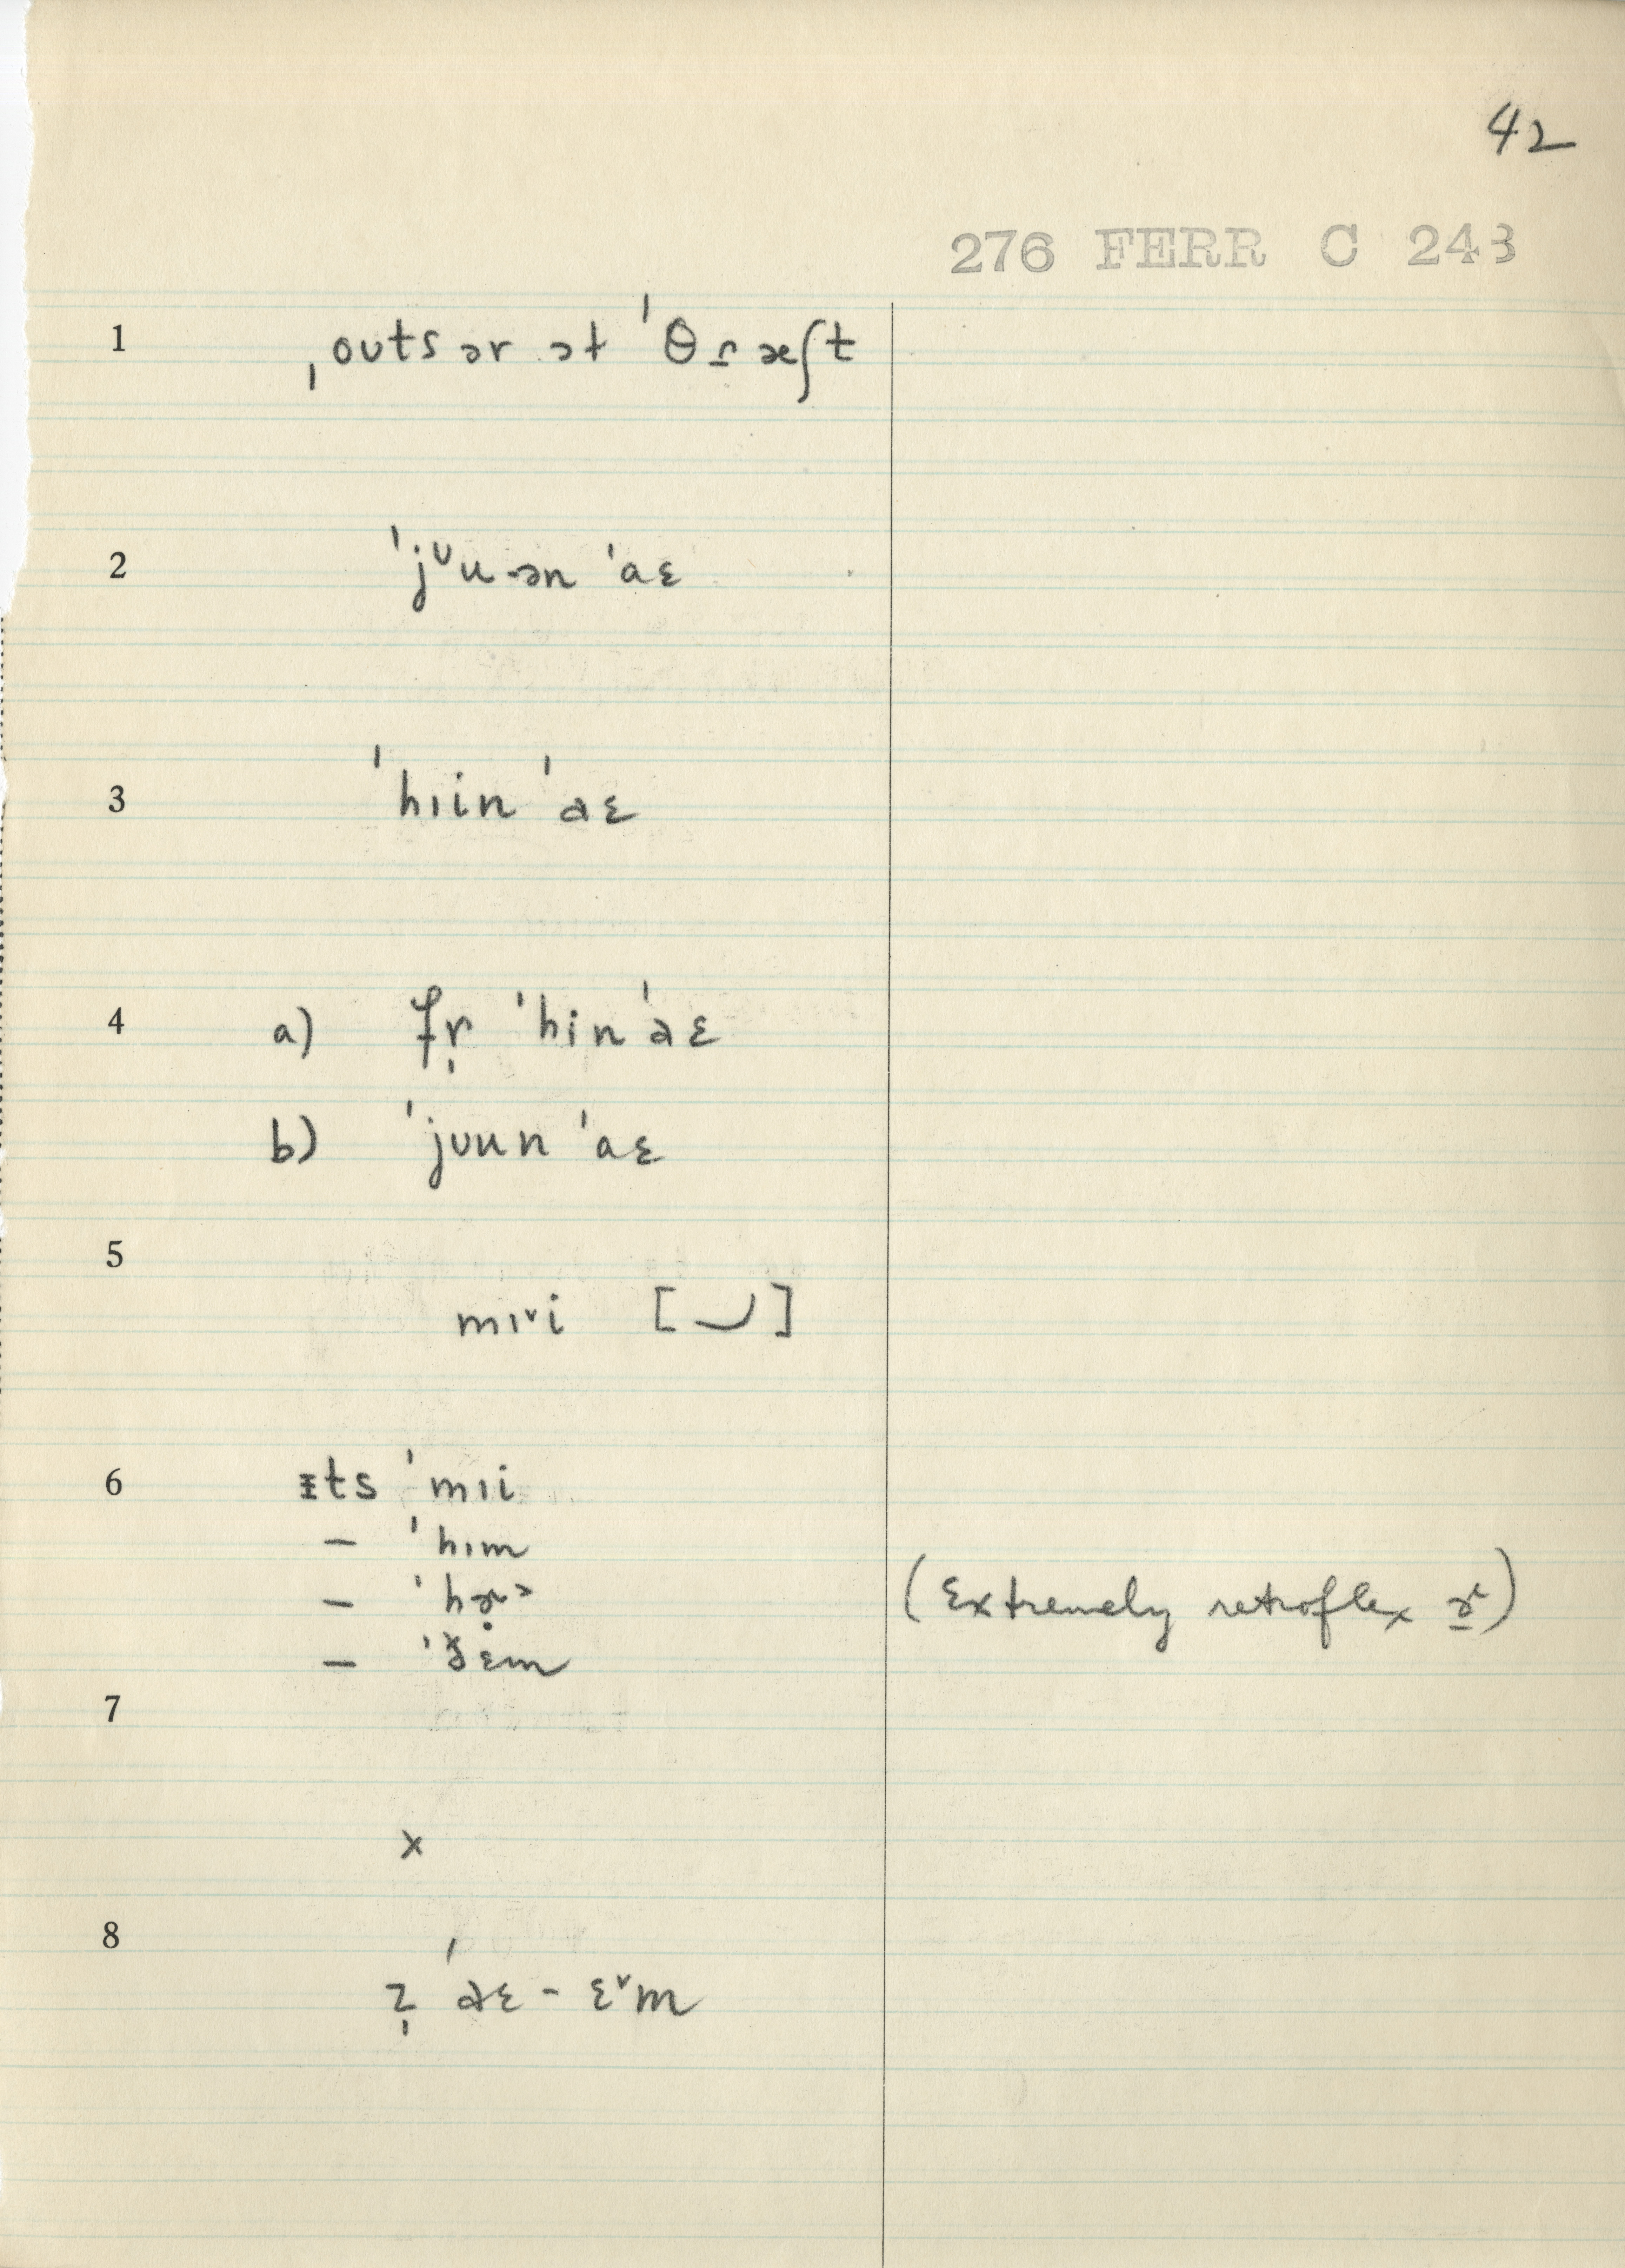 42
276 FERR C 243
1 ˌoʊts ər ət ˈθɾ̠æʃt
2 ˈjᶷu-ən ˈaɛ
3 ˈhɪin ˈaɛ
4 a) fr̩ ˈhin ˈaɛ
b) ˈjʊun ˈaɛ
5 mɪˇi [‿]
6 ᵻts ˈmɪi
– ˈhɪm
– ˈhɚ˃ (Extremely retroflex ɚ)
– ˈðɛm
7
x
8 z̩ ˈaɛ - ɛˇm